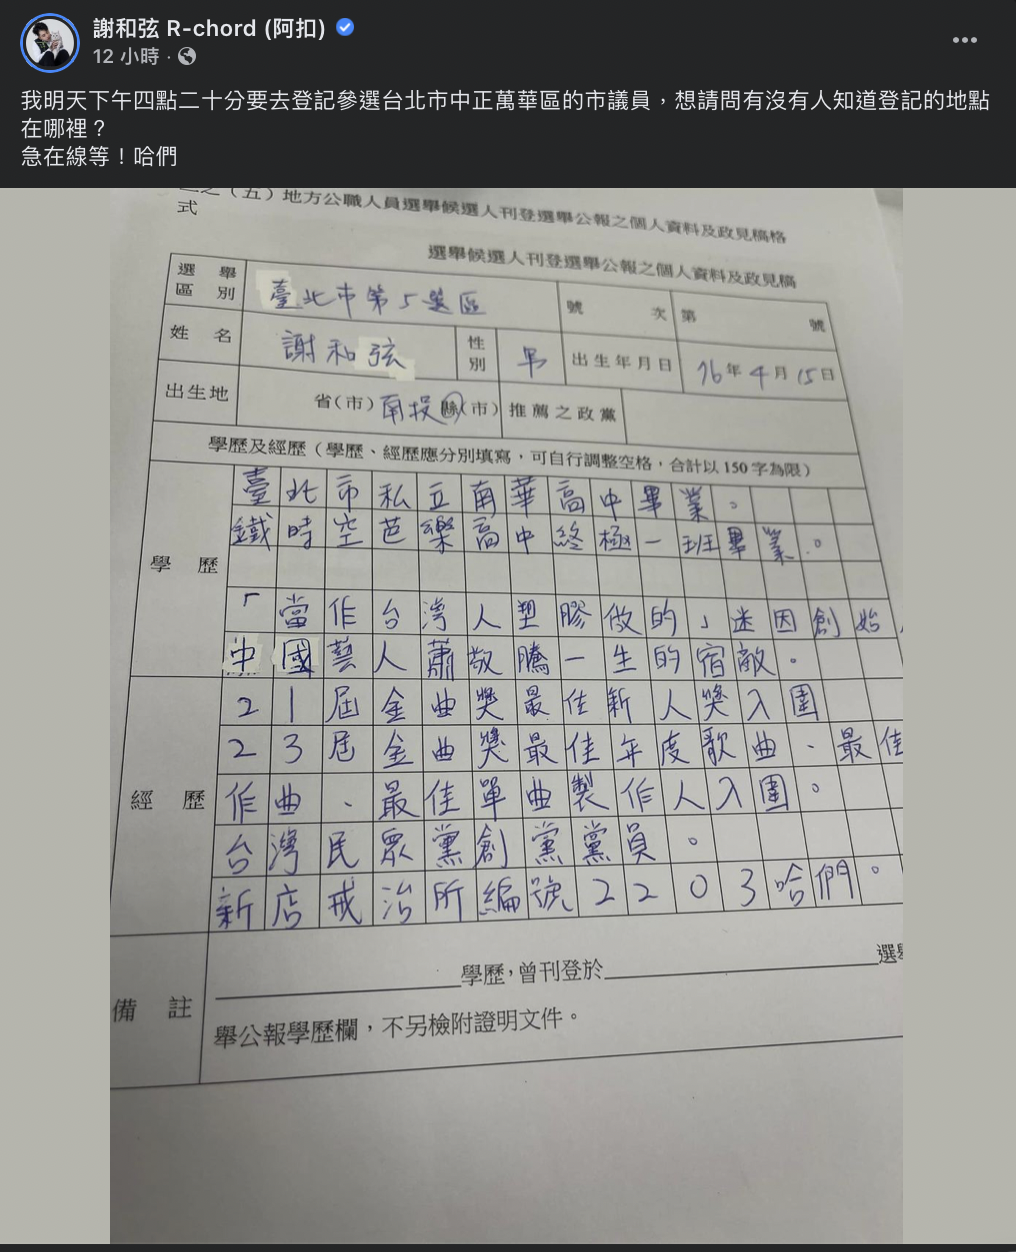 謝和弦 R-chord (阿扣)
12 小時 ·
我明天下午四點二十分要去登記參選台北市中正萬華區的市議員，想請問有沒有人知道登記的地點
在哪裡？
急在線等！哈們
（五）地方公職人員選舉候選人刊登選舉公報之個人資料及政見稿格
式
選舉候選人刊登選舉公報之個人資料及政見稿
選舉區別 臺北市第5選區 號次 第 號
姓名 謝和弦 性別 男 出生年月日 76年4月15日
出生地 省(市)南投縣(市) 推薦之政黨
學歷及經歷（學歷、經歷應分別填寫，可自行調整空格，合計以150字為限）
學歷
臺北市私立南華高中畢業。
鐵時空芭樂高中終極一班畢業。
「當作台灣人塑膠做的」迷因創始
中國藝人蕭敬騰一生的宿敵。
經歷
21屆金曲獎最佳新人獎入圍
23屆金曲獎最佳年度歌曲、最佳
作曲、最佳單曲製作人入圍。
台灣民眾黨創黨黨員。
新店戒治所編號2203哈們。
備註
學歷，曾刊登於 選舉
舉公報學歷欄，不另檢附證明文件。